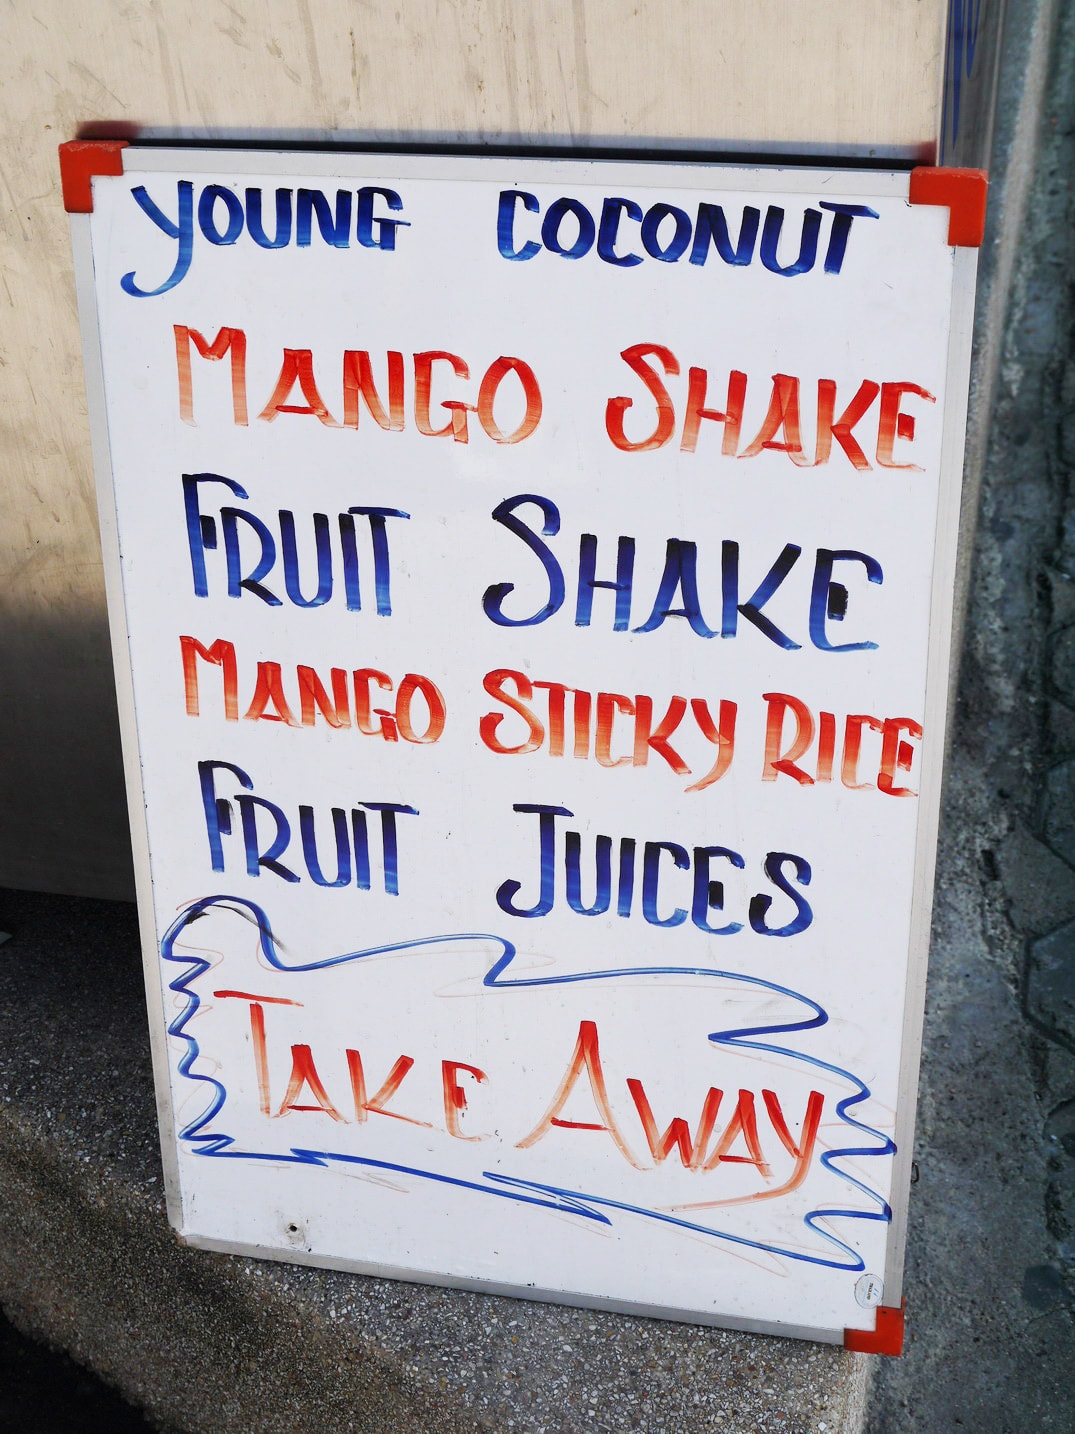 YOUNG COCONUT
MANGO SHAKE
FRUIT SHAKE
MANGO STICKY RICE
FRUIT JUICES
TAKE AWAY